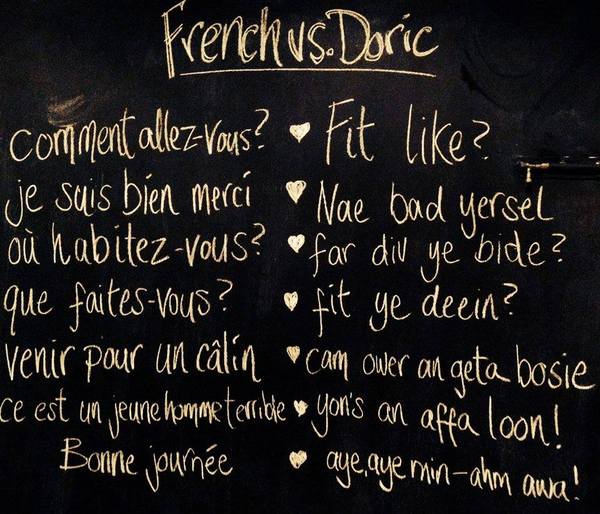 French vs. Doric
comment allez-vous? ♥ Fit like?
je suis bien merci ♥ Nae bad yersel
où habitez-vous? ♥ far div ye bide?
que faites-vous? ♥ fit ye deein?
venir pour un câlin ♥ cam ower an geta bosie
ce est un jeune homme terrible ♥ yon's an affa loon!
Bonne journée ♥ aye, aye min - ahm awa!